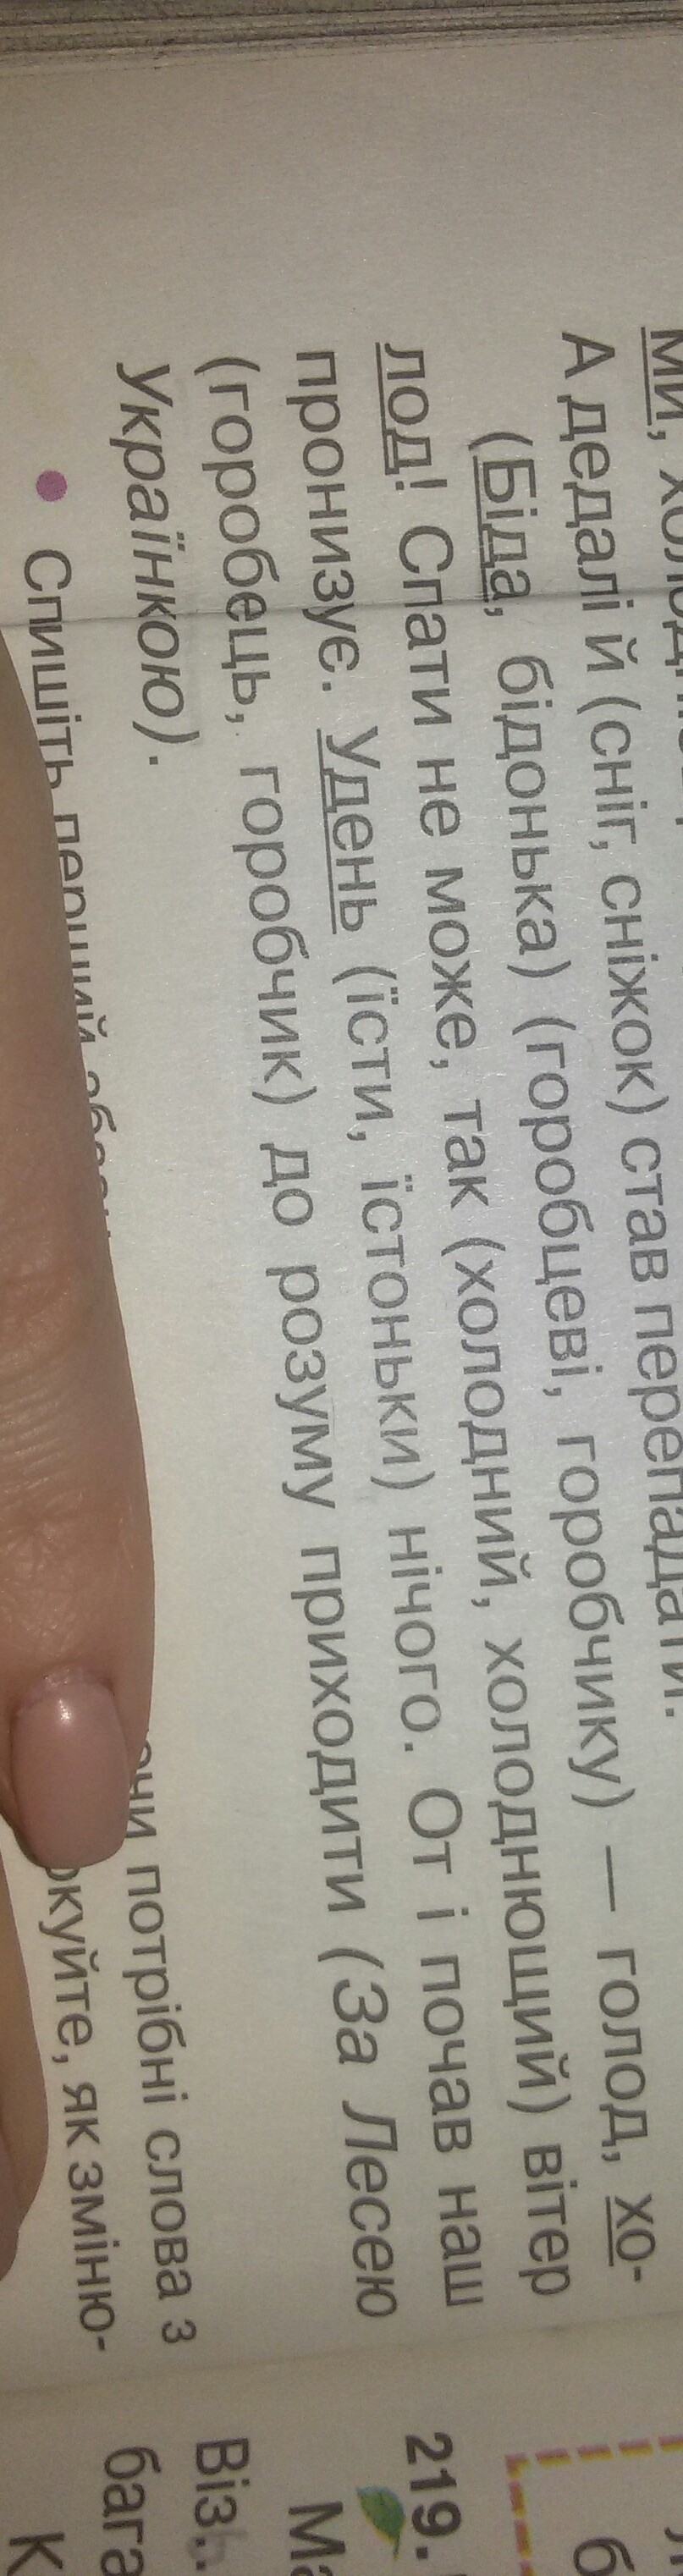 ми,
А дедалі й (сніг, сніжок) став перепадати.
(Біда, бідонька) (горобцеві, горобчику) — голод, хо-
лод! Спати не може, так (холодний, холоднющий) вітер
пронизує. Удень (їсти, їстоньки) нічого. От і почав наш
(горобець, горобчик) до розуму приходити (За Лесею
Українкою).
• Спишіть перший потрібні слова з
як зміню-
219.
Віз..